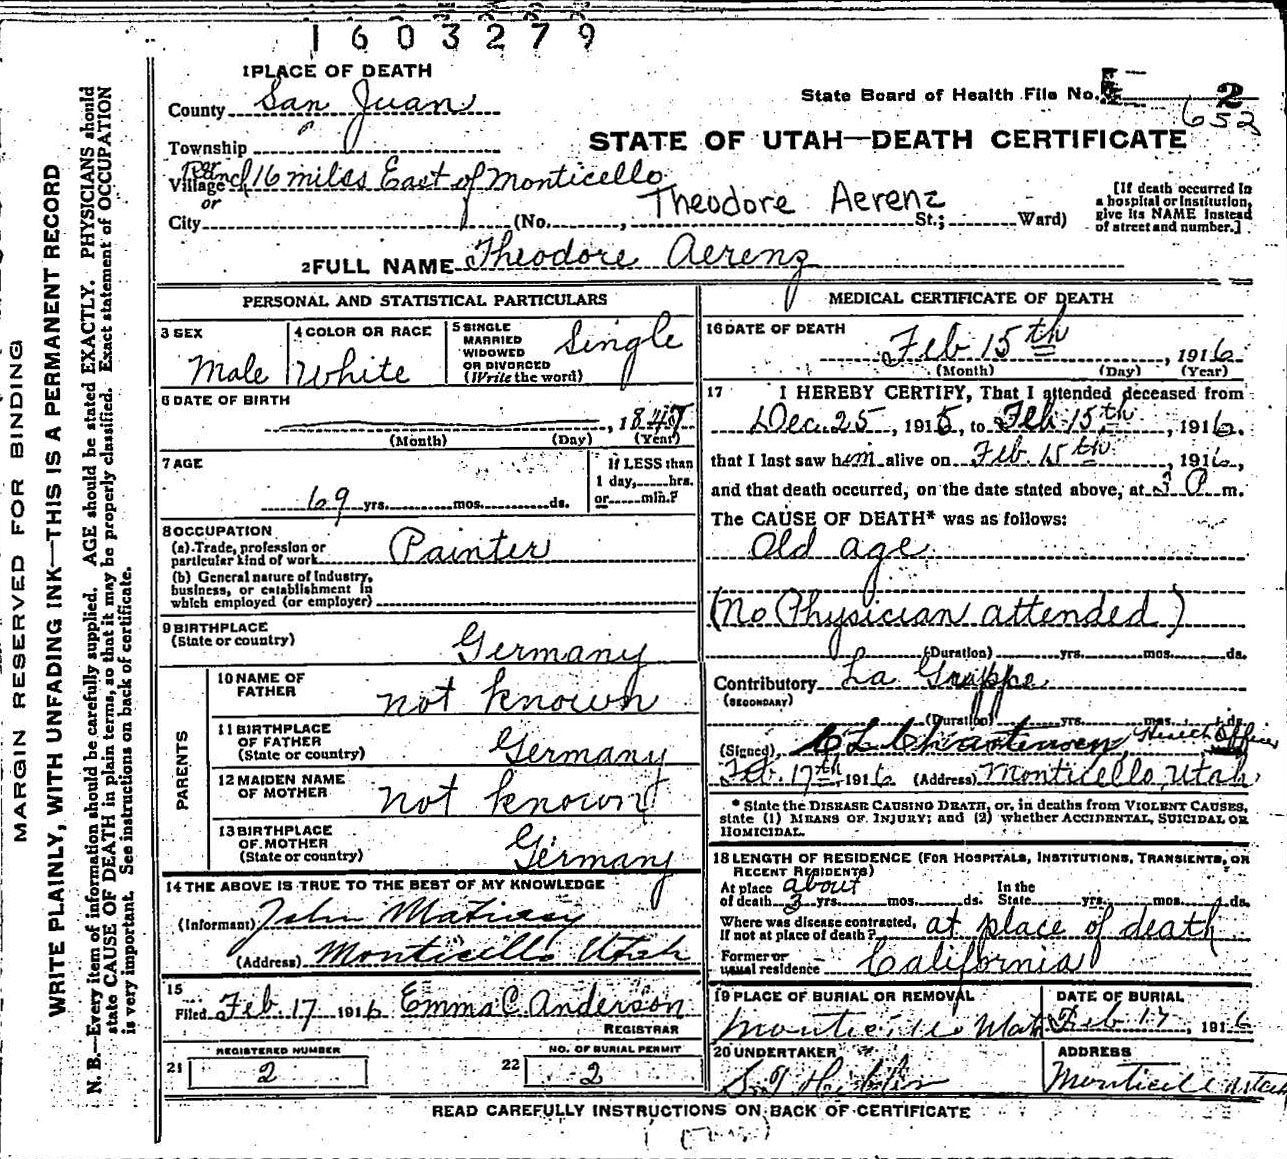 1603279
1 PLACE OF DEATH
County San Juan
State Board of Health File No. 2
652
Township
STATE OF UTAH—DEATH CERTIFICATE
Village Ranch 16 miles East of Monticello
or
Theodore Aerenz
City (No. , St.; Ward)
[If death occurred in
a hospital or institution,
give its NAME instead
of street and number.]
2 FULL NAME Theodore Aerenz
PERSONAL AND STATISTICAL PARTICULARS
3 SEX
Male
4 COLOR OR RACE
White
5 SINGLE
MARRIED
WIDOWED
OR DIVORCED
(Write the word)
Single
6 DATE OF BIRTH
, 1847
(Month) (Day) (Year)
7 AGE
69 yrs. mos. ds.
If LESS than
1 day, hrs.
or min.?
8 OCCUPATION
(a) Trade, profession or
particular kind of work Painter
(b) General nature of Industry,
business, or establishment in
which employed (or employer)
9 BIRTHPLACE
(State or country) Germany
PARENTS
10 NAME OF
FATHER not known
11 BIRTHPLACE
OF FATHER
(State or country) Germany
12 MAIDEN NAME
OF MOTHER not known
13 BIRTHPLACE
OF MOTHER
(State or country) Germany
14 THE ABOVE IS TRUE TO THE BEST OF MY KNOWLEDGE
(Informant) John
(Address) Monticello Utah
15
Filed Feb 17 1916 Emma C. Anderson
REGISTRAR
21 REGISTERED NUMBER
2
22 NO. OF BURIAL PERMIT
2
MEDICAL CERTIFICATE OF DEATH
16 DATE OF DEATH
Feb 15th, 1916
(Month) (Day) (Year)
17 I HEREBY CERTIFY, That I attended deceased from
Dec. 25, 1915, to Feb. 15th, 1916.
that I last saw him alive on Feb. 15th, 1916,
and that death occurred, on the date stated above, at 3 P m.
The CAUSE OF DEATH* was as follows:
Old age
(No Physician attended)
(Duration) yrs. mos. ds.
Contributory La Grippe
(SECONDARY)
(Duration) yrs. mos. ds.
(Signed) Christensen, Health Officer
Feb. 17th, 1916 (Address) Monticello, Utah
* State the DISEASE CAUSING DEATH, or, in deaths from VIOLENT CAUSES,
state (1) MEANS OF INJURY; and (2) whether ACCIDENTAL, SUICIDAL OR
HOMICIDAL.
18 LENGTH OF RESIDENCE (FOR HOSPITALS, INSTITUTIONS, TRANSIENTS, OR
RECENT RESIDENTS)
At place about In the
of death 3 yrs. mos. ds. State yrs. mos. ds.
Where was disease contracted,
If not at place of death? at place of death
Former or
usual residence California
19 PLACE OF BURIAL OR REMOVAL
Monticello Utah
DATE OF BURIAL
Feb 17, 1916
20 UNDERTAKER
ADDRESS
Monticello Utah
READ CAREFULLY INSTRUCTIONS ON BACK OF CERTIFICATE
MARGIN RESERVED FOR BINDING
WRITE PLAINLY, WITH UNFADING INK—THIS IS A PERMANENT RECORD
N. B.—Every item of information should be carefully supplied. AGE should be stated EXACTLY. PHYSICIANS should
state CAUSE OF DEATH in plain terms, so that it may be properly classified. Exact statement of OCCUPATION
is very important. See instructions on back of certificate.